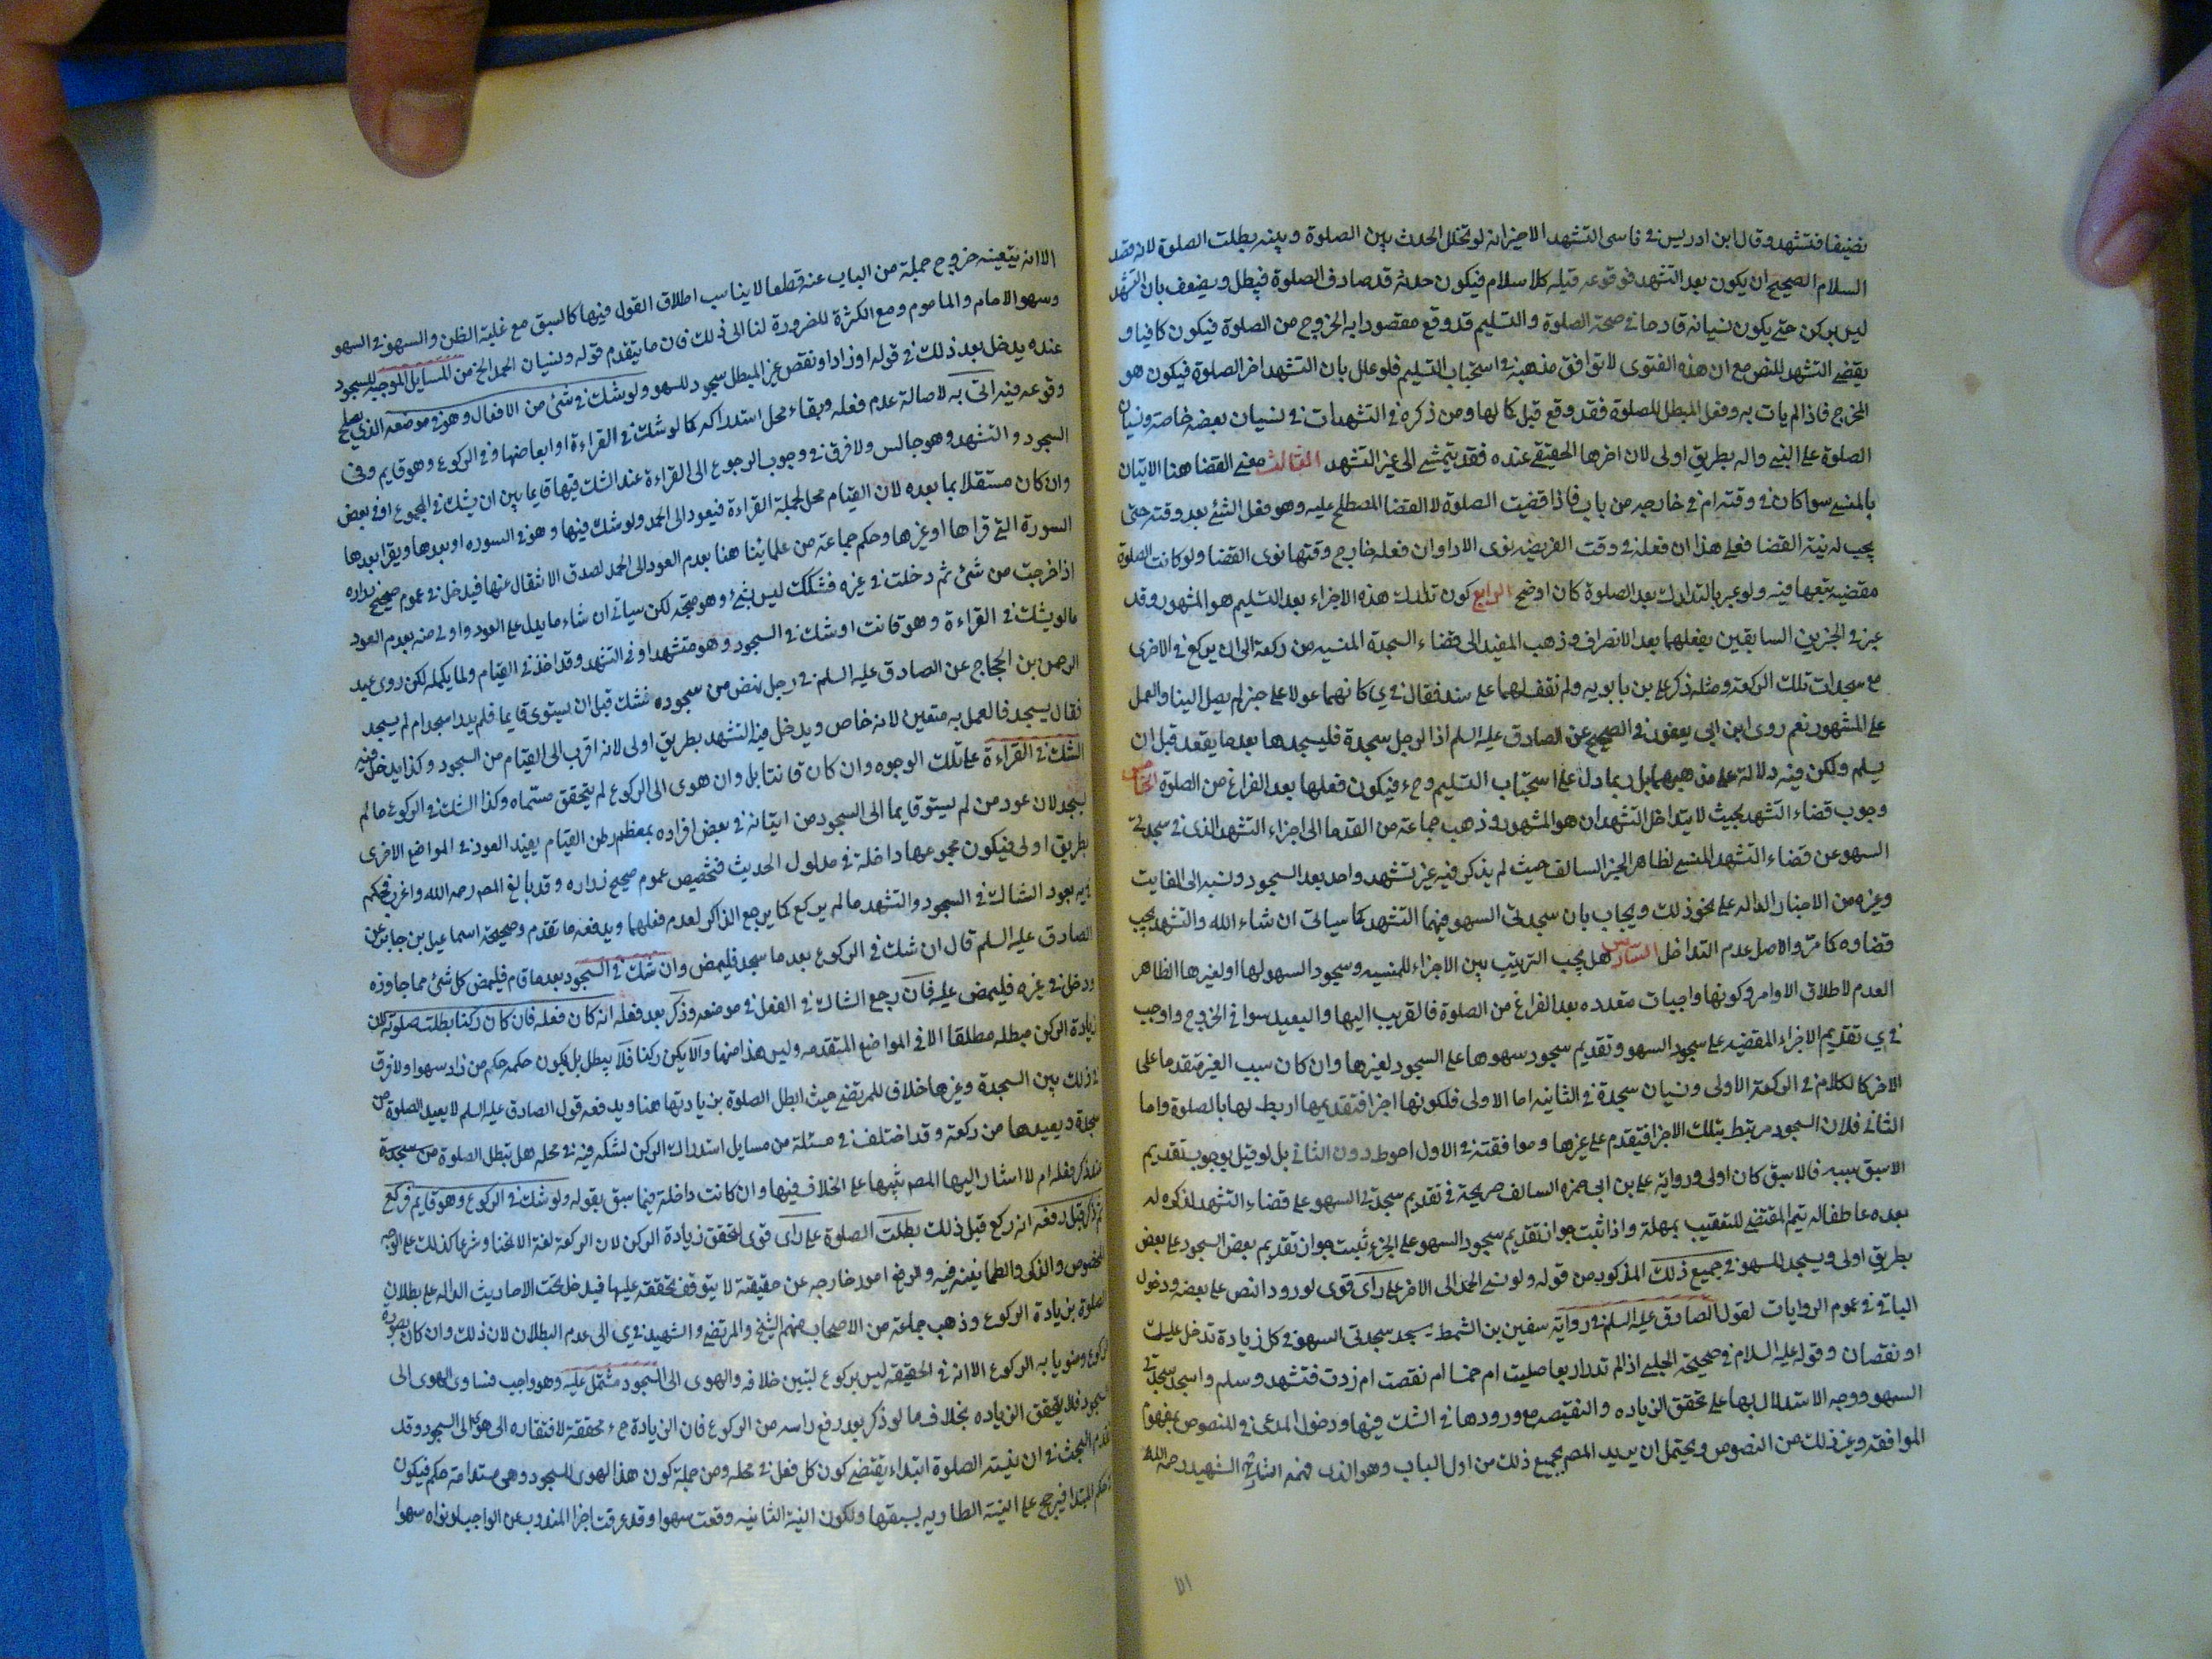 نصنيفا فتشهد وقال ابن ادريس في ناسى التشهد الاخير انه لو تخلل الحدث بين الصلوة وبينه بطلت الصلوة لانه قصد
السلام الصحيح ان يكون بعد التشهد فوقوعه قبله كلا سلام فيكون حدثه قد صادف الصلوة فيبطل ويضعف بان التشهد
ليس بركن حتى يكون نسيانه قادحا في صحة الصلوة والتسليم قد وقع مقصودا به الخروج من الصلوة فيكون كافيا و
يقضى التشهد للنص مع ان هذه الفتوى لا توافق مذهبه في استحباب التسليم فلو علل بان التشهد اخر الصلوة فيكون هو
المخرج فاذا لم يات به وفعل المبطل للصلوة فقد وقع قبل كمالها ومن ذكره في التشهدات في نسيان بعضه خاصة ونسيان
الصلوة على النبي واله بطريق اولى لان اخرها الحقيقي عنده فقد يتمشى الى غير التشهد الثالث معنى القضا هنا الاتيان
بالمنسي سوا كان في وقته ام في خارجه من باب فاذا قضيت الصلوة لا القضا المصطلح عليه وهو فعل الشئ بعد وقته حتى
يجب له نية القضا فعلى هذا ان فعله في وقت الفريضه نوى الادا وان فعله خارج وقتها نوى القضا ولو كانت الصلوة
مقضيه تبعها فيه ولو عبر بالتدارك بعد الصلوة كان اوضح الرابع كون تدارك هذه الاجزاء بعد التسليم هو المشهور وقد
عبر في الجزين السابقين بفعلهما بعد الانصراف وذهب المفيد الى قضاء السجدة المنسيه من ركعة الى ان يركع في الاخرى
مع سجدات تلك الركعة ومثله ذكر على بن بابويه ولم نقف لهما على سند فقال في ي كانهما عولا على خبر لم يصل الينا والعمل
على المشهور نعم روى ابن ابي يعفور في الصحيح عن الصادق عليه السلم اذا الرجل سجدة فليسجدها بعد ما يقعد قبل ان
يسلم ولكن فيه دلالة على مذهبهما بل ربما دل على استحباب التسليم وح ء فيكون فعلها بعد الفراغ من الصلوة الخامس
وجوب قضاء التشهد بحيث لا يتداخل التشهدان هو المشهور وذهب جماعة من القدما الى اجزاء التشهد الذى في سجدتى
السهو عن قضاء التشهد المنسي لظاهر الخبر السالف حيث لم يذكر فيه غير تشهد واحد بعد السجود ونسبه الى الفايت
وغيره من الاخبار الداله على نحو ذلك ويجاب بان سجدتى السهو فيهما التشهد كما سياتى ان شاء الله والتشهد يجب
قضاوه كما مر والاصل عدم التداخل السادس هل يجب الترتيب بين الاجزاء المنسيه وسجود السهو لها او لغيرها الظاهر
العدم لاطلاق الاوامر وكونها واجبات متعدده بعد الفراغ من الصلوة فالقريب اليها والبعيد سوا في الخروج واوجب
في ي تقديم الاجزاء المقضيه على سجود السهو وتقديم سجود سهوها على السجود لغيرها وان كان سبب الغير متقدما على
الاخر كالكلام في الركعة الاولى ونسيان سجدة في الثانيه اما الاولى فلكونها اجزا فتقديمها اربط لها بالصلوة واما
الثاني فلان السجود مرتبط بتلك الاجزا فيتقدم على غيرها وموافقته في الاول احوط دون الثاني بل لو قيل بوجوب تقديم
الاسبق سببه فالاسبق كان اولى ورواية على بن ابي حمزه السالف صريحة في تقديم سجدتى السهو على قضاء التشهد لذكره له
بعده عاطفا له بثم المقتضى للتعقيب بمهلة واذا ثبت جواز تقديم سجود السهو على الجزء ثبت جواز تقديم بعض السجود على بعض
بطريق اولى ويسجد للسهو في جميع ذلك المذكور من قوله ولو نسي الحمد الى الاخر على راى قوى لورود النص على بعضه ودخول
الباقي في عموم الروايات لقول الصادق عليه السلم في رواية سفين بن السمط تسجد سجدتى السهو في كل زيادة تدخل عليك
او نقصان وقوله عليه السلام في صحيحة الحلبي اذا لم تدر اربعا صليت ام خمسا ام نقصت ام زدت فتشهد وسلم واسجد سجدتى
السهو ووجه الاستدلال بها على تحقق الزياده والنقيصه مع ورودها في الشك فيها ودخول المدعى في المنصوص بمفهوم
الموافقه وغير ذلك من النصوص ويحتمل ان يريد المصر بجميع ذلك من اول الباب وهو الذى فهمه الشارح الشهيد رحمه الله
الا
الا انه يتعينه خروج جملة من الباب عنه قطعا لا يناسب اطلاق القول فيها كالسبق مع غلبة الظن والسهو في السهو
وسهو الامام والماموم ومع الكثرة للضرورة لنا الى ذلك فان ما يتقدم قوله ونسيان الحمد الخ من المسايل الموجبه للسجود
عنده يدخل بعد ذلك في قوله او زاد او نقص غير المبطل سجود للسهو ولو شك في شئ من الافعال وهو في موضعه الذى يصلح
وقوعه فيه اتى به لاصالة عدم فعله وبقاء محل استدراكه كما لو شك في القراءة او ابعاضها وفي الركوع وهو قايم وفي
السجود والتشهد وهو جالس ولا فرق في وجوب الرجوع الى القراءة عند الشك فيها قايما بين ان يشك في المجموع او في بعض
وان كان مستقلا بما بعده لان القيام محل لجملة القراءة فيعود الى الحمد ولو شك فيها وهو في السوره او بعدها ويقرا بعدها
السورة التي قراها او غيرها وحكم جماعة من علمائنا هنا بعدم العود الى الحمد لصدق الانتقال عنها فيدخل في عموم صحيح زراره
اذا خرجت من شئ ثم دخلت في غيره فشكك ليس بشئ وهو متجه لكن سياتى ان شاء ما يدل على العود واولى منه بعدم العود
ما لو يشك في القراءة وهو قانت او شك في السجود وهو متشهد او في التشهد وقد اخذ في القيام ولما يكمله لكن روى عبد
الرحمن بن الحجاج عن الصادق عليه السلم في رجل نهض من سجوده فشك قبل ان يستوى قايما فلم يدر اسجد ام لم يسجد
فقال يسجد فالعمل به متعين لانه خاص ويدخل فيه التشهد بطريق اولى لانه اقرب الى القيام من السجود وكذا يدخل فيه
الشك في القراءة على تلك الوجوه وان كان قانتا بل وان هوى الى الركوع لم يتحقق مستماه وكذا الشك في الركوع ما لم
يسجد لان عود من لم يستو قايما الى السجود من اتيانه في بعض افراده بمعظم ركن القيام يفيد العود في المواضع الاخرى
بطريق اولى فيكون مجموعها داخلة في مدلول الحديث فتخصيص عموم صحيح زراره وقد بالغ المصر رحمه الله واغرب فحكم
بعود الشاك في السجود والتشهد ما لم يركع كما يرجع الذاكر لعدم فعلهما ويدفعه ما تقدم وصحيحة اسماعيل بن جابر عن
الصادق عليه السلم قال ان شك في الركوع بعد ما سجد فليمض وان شك في السجود بعد ما قام فليمض كل شئ مما جاوزه
ودخل في غيره فليمض عليه فان رجع الشاك في الفعل في موضعه وذكر بعد فعله انه كان فعله فان كان ركنا بطلت صلوته لان
زيادة الركن مبطله مطلقا الا في المواضع المتقدمه وليس هذا منها والا يكن ركنا فلا يبطل بل يكون حكمه حكم من زاد سهوا ولا فرق
في ذلك بين السجدة وغيرها خلافا للمرتضى حيث ابطل الصلوة بزيادتها هنا ويدفعه قول الصادق عليه السلم لا يعيد الصلوة من
سجدة ويعيدها من ركعة وقد اختلف في مسئلة من مسايل استدراك الركن لشكه فيه في محله هل تبطل الصلوة من سجدة
عند ذكر فعله ام لا اشار اليها المصر تنبيها على الخلاف فيها وان كانت داخلة فيما سبق بقوله ولو شك في الركوع وهو قايم فركع
ثم ذكر قبل رفعه انه ركع قبل ذلك بطلت الصلوة على راى قوى لتحقق زيادة الركن لان الركعة لغة الانحنا وشرعا كذلك على الوجه
المخصوص والذكر والطمانينة فيه والرفع امور خارجه عن حقيقة لا يتوقف تحققه عليها فيدخل تحت الاحاديث الداله على بطلان
الصلوة بزيادة الركوع وذهب جماعة من الاصحاب منهم الشيخ والمرتضى والشهيد في ي الى عدم البطلان لان ذلك وان كان بصورة
الركوع ومنويا به الركوع الا انه في الحقيقه ليس بركوع لتبين خلافه والهوى الى السجود مشتمل عليه وهو واجب فساوى الهوى الى
السجود فلا يتحقق الزياده بخلاف ما لو ذكر بعد رفع راسه من الركوع فان الزيادة ح ء محققة لافتقاره الى هوى الى السجود وقد
تقدم البحث في ان نية الصلوة ابتداء يقتضى كون كل فعل في محله ومن جملة كون هذا الهوى للسجود وهى مستدامة حكم فيكون
حكم المبتدا فيرجح على النية الطاريه لسبقها ولكون النية الثانيه وقعت سهوا وقد عرفت اجزا المندوب عن الواجب لو نواه سهوا